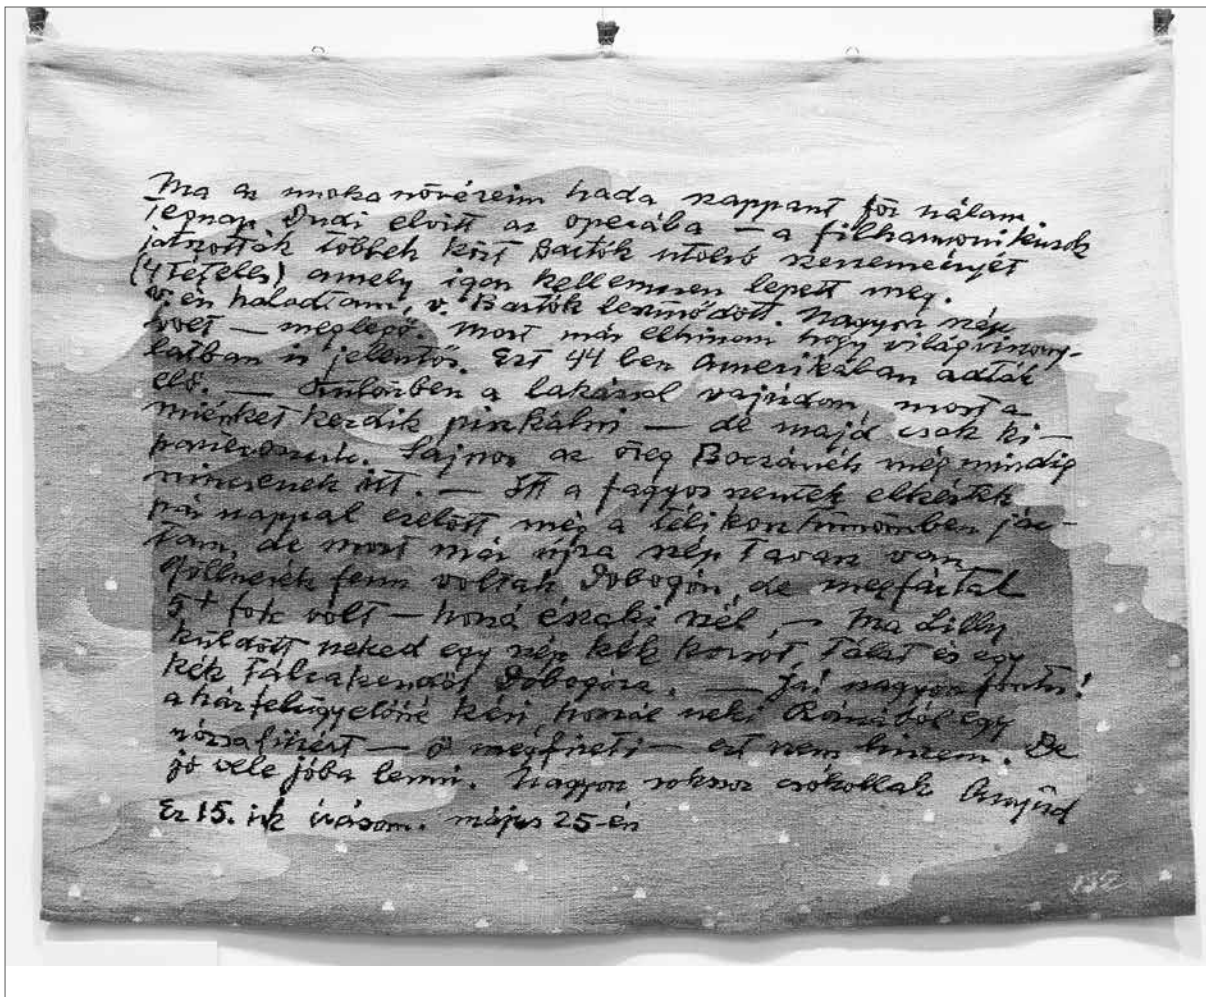 Ma az unokanővéreim hada zappant för nálam.
Tegnap Dudi elvitt az operába — a filharmonikusok
játszották többek közt Bartók utolsó szerzeményét
(4 tételes) amely igen kellemesen lepett meg.
V. én haladtam, v. Bartók lesz módott. Nagyon szép
volt — meglepő. Most már elhiszem hogy világviszony-
latban is jelentős. Ezt 44 ben Amerikában adták
elő. — Különben a lakással vajúdom, most a
miénket kezdik piszkálni — de majd csak ki-
Sajnos az öreg még mindig
nincsenek itt. — Itt a fagyos szentek elkéstek
pár nappal ezelőtt még a téli kosztümömben jár-
tam, de most már újra szép tavasz van
fenn voltak Dobogón, de megfáztak
5+ fok volt — hozzá északi szél, — Ma Lilly
küldött neked egy szép kék korsót, tálat és egy
kék Dobogóra. — Jaj nagyon fontos!
a házfelügyelőné kéri, hozzál neki Rómából egy
rózsafüzért — ő megfizeti — ezt nem hiszem. De
jó vele jóba lenni. Nagyon sokszor csókollak Anyád
Ez 15. ik írásom. május 25-én
132